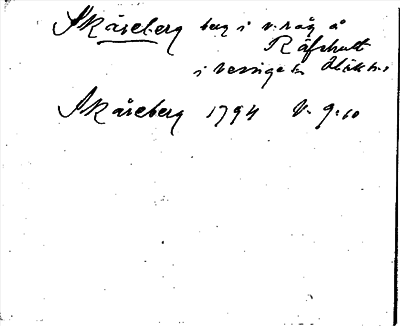 Skåseberg berg i v. råg å
Räfshult
i Vessige sn
Skåseberg 1794 V. 9:60